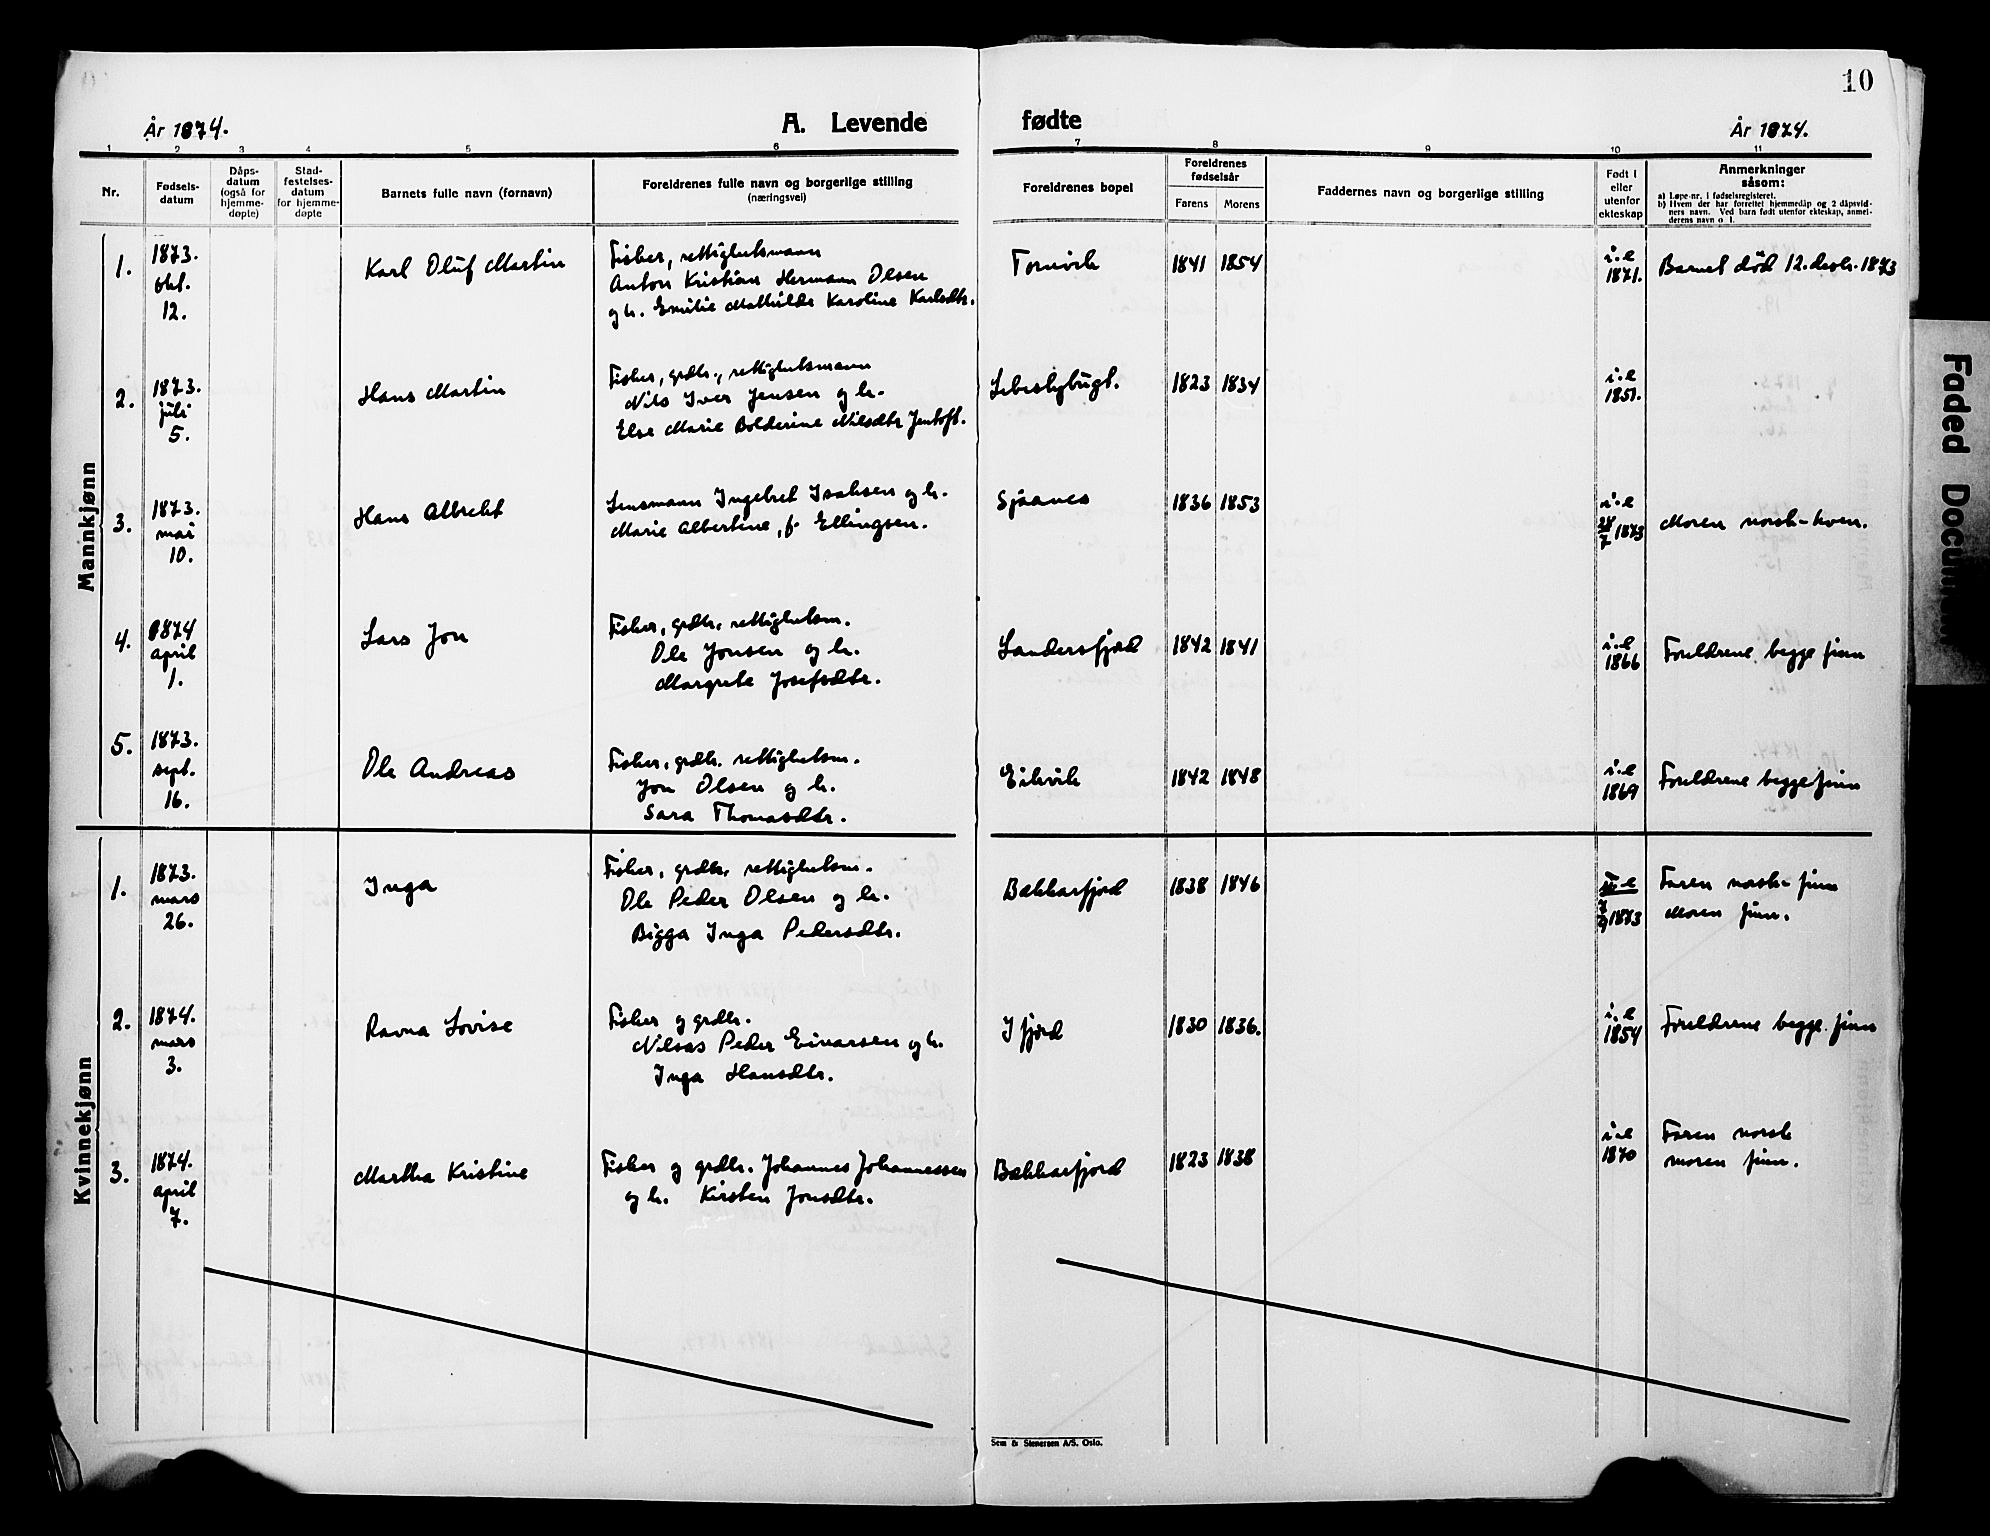 10
År 1874.
A. Levende
fødte
År 1874.
1 2 3 4 5 6 7 8 9 10 11
Nr.
Fødsels-
datum
Dåps-
datum
(også for
hjemme-
døpte)
Stad-
festelses-
datum
for hjemme-
døpte
Barnets fulle navn (fornavn)
Foreldrenes fulle navn og borgerlige stilling
(næringsvei)
Foreldrenes bopel
Foreldrenes
fødselsår
Farens Morens
Faddernes navn og borgerlige stilling
Født i
eller
utenfor
ekteskap
Anmerkninger
såsom:
a) Løpe-nr. i fødselsregisteret.
b) Hvem der har forrettet hjemmedåp og 2 dåpsvid-
ners navn. Ved barn født utenfor ekteskap, anmel-
derens navn o. l.
Mannkjønn
1.
1873.
okt.
12.
Karl Oluf Martin
Fisker, rettighetsmann
Anton Kristian Hermann Olsen
og h. Emilie Mathilde Karoline Karlsdtr.
Tornvik
1841 1854
i.e
1871.
Barnet død 12. desbr. 1873
2.
1873.
juli
5.
Hans Martin
Fisker, grdbr., rettighetsmann
Nils Iver Jensen og h.
Else Marie Bolderine Nilsdtr Jentoft.
Lebesbybugt.
1823 1834
i.e
1851.
3.
1873.
mai
10.
Hans Albrekt
Lensmann Ingebret Isaksen og h.
Marie Albertine, f. Ellingsen.
Sjaanes
1836 1853
u.e
7 1873
Moren norsk-kven.
4.
1874
april
1.
Lars Jon
Fisker, grdbr. rettighetsm.
Ole Jonsen og h.
Margrete Josefsdtr.
Landersfjord
1842 1841
i.e
1866
Foreldrene begge finn
5.
1873.
sept.
16.
Ole Andreas
Fisker, grdbr. rettighetsm.
Jon Olsen og h.
Sara Thomasdtr.
Eikvik
1842 1848
i.e
1869
Foreldrene begge finn
Kvinnekjønn
1.
1873.
mars
26.
Inga
Fisker, grdbr. rettighetsm.
Ole Peder Olsen og h.
Bigga Inga Pedersdtr.
Bekkarfjord
1838 1846
u.e
7
9 1873
Faren norsk-finn
Moren finn.
2.
1874.
mars
3.
Ravna Lovise
Fisker og grdbr.
Nilsas Peder Eivarsen og h.
Inga Hansdtr.
Ifjord
1830 1836.
i.e
1854
Foreldrene begge finn
3.
1874.
april
7.
Martha Kristine
Fisker og grdbr. Johannes Johannessen
og h. Kirsten Jonsdtr.
Bekkarfjord
1823 1838
i.e
1870
Faren norsk
moren finn.
Sem & Stenersen A/S, Oslo.
Faded